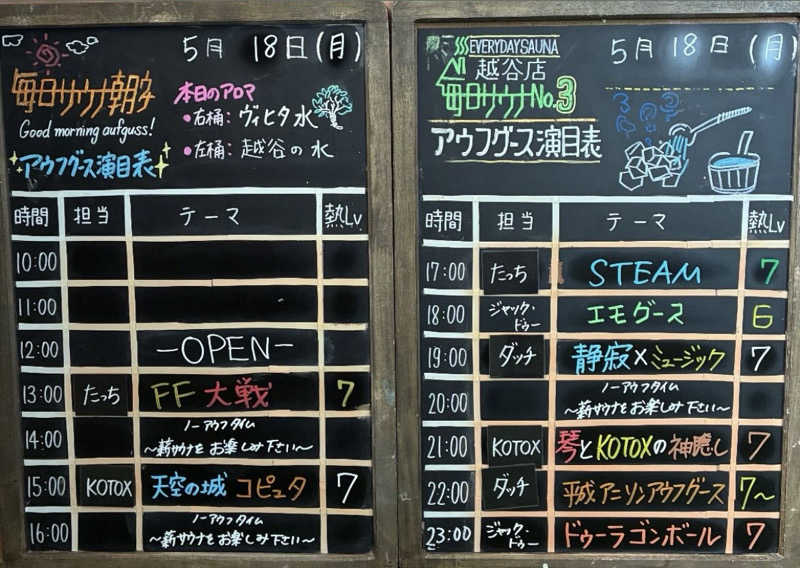 5月 18日(月)
毎日サウナ朝子
Good morning aufguss!
アウフグース演目表
本日のアロマ
●右桶: ヴィヒタ水
●左桶: 越谷の水
時間 担当 テーマ 熱Lv
10:00
11:00
12:00 -OPEN-
13:00 たっち FF大戦 7
14:00 ノーアウフタイム
〜薪サウナをお楽しみ下さい〜
15:00 KOTOX 天空の城 コピュタ 7
16:00 ノーアウフタイム
〜薪サウナをお楽しみ下さい〜
5月 18日 (月)
EVERYDAYSAUNA
越谷店
毎日サウナNo.3
アウフグース演目表
時間 担当 テーマ 熱Lv
17:00 たっち STEAM 7
18:00 ジャック・ドゥー エモグース 6
19:00 ダッチ 静寂×ミュージック 7
20:00 ノーアウフタイム
〜薪サウナをお楽しみ下さい〜
21:00 KOTOX 琴とKOTOXの神隠し 7
22:00 ダッチ 平成アニソンアウフグース 7〜
23:00 ジャック・ドゥー ドゥーラゴンボール 7